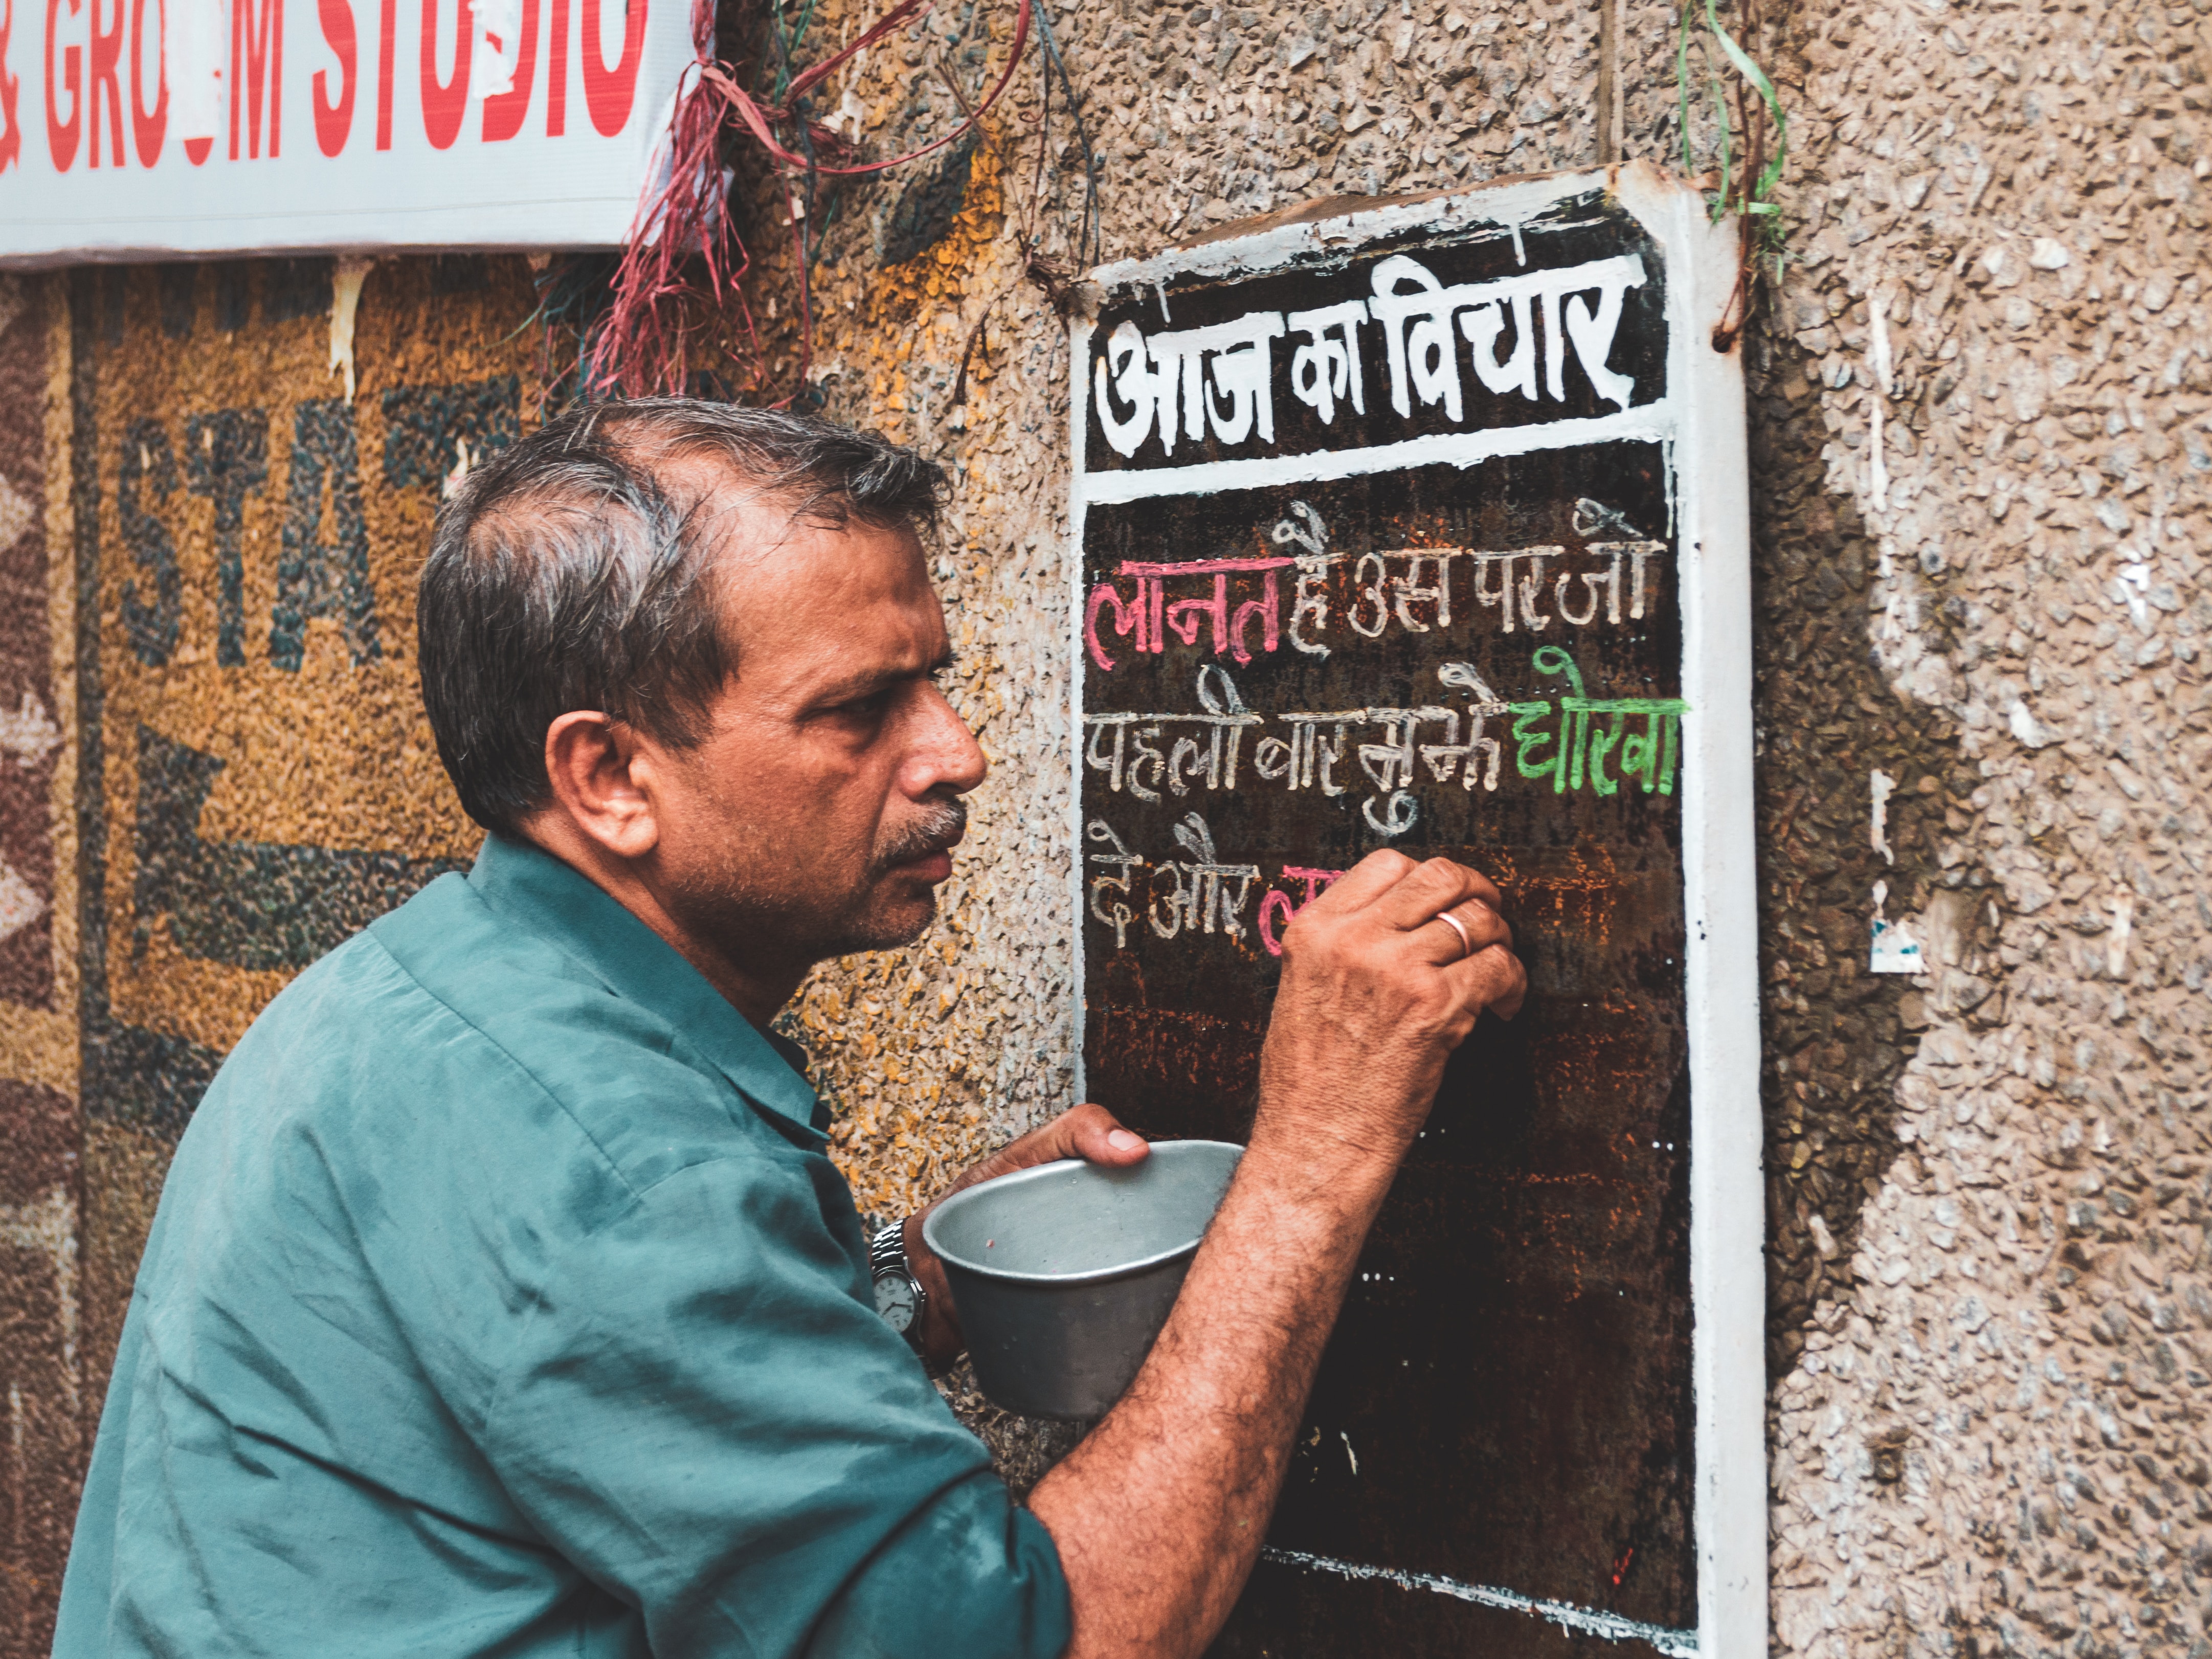 & GROOM STUDIO
STAT
आज का विचार
लानत है उस पर जो
पहली बार मुझे धोखा
दे और